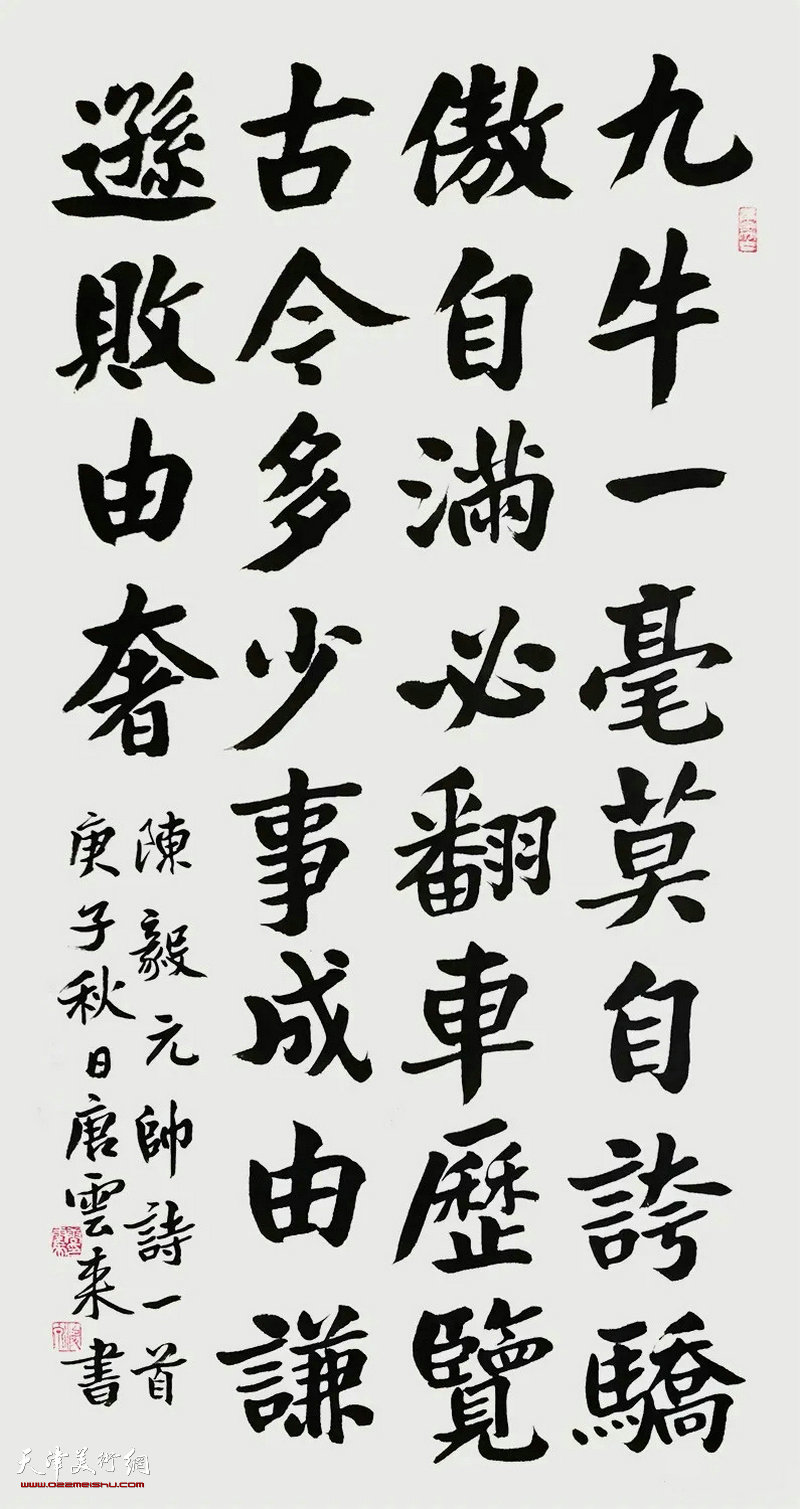 九牛一毫莫自誇驕
傲自滿必翻車歷覽
古今多少事成由謙
遜敗由奢
陳毅元帥詩一首
庚子秋日唐雲来書
天津美術網
www.022meishu.com